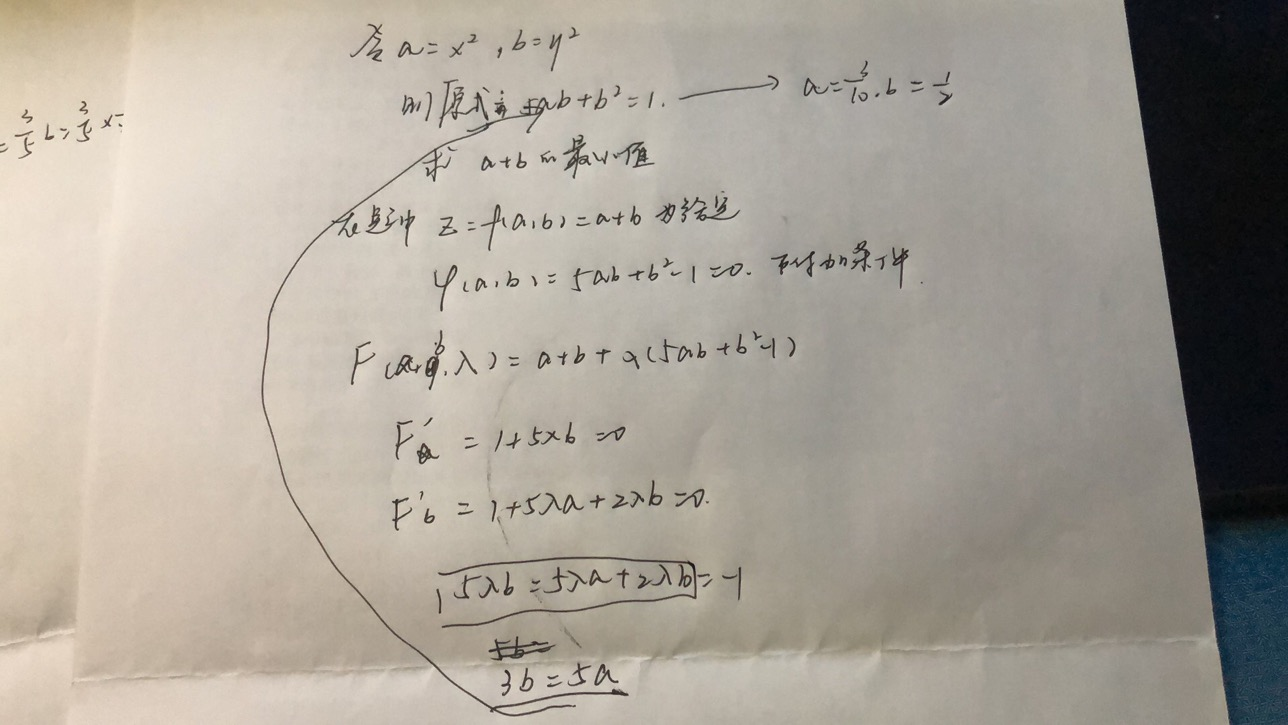 令 a = x², b = y²
则原式为 5ab + b² = 1. → a = 3/10, b = 1/2
= 3/5 b = 3/5 x
求 a+b 的最小值
在题中 z = f(a,b) = a+b 为给定
φ(a,b) = 5ab + b² - 1 = 0. 为附加条件.
F(a, b, λ) = a+b + λ(5ab + b² - 1)
F'a = 1 + 5λb = 0
F'b = 1 + 5λa + 2λb = 0.
5λb = 5λa + 2λb = -1
5b =
3b = 5a